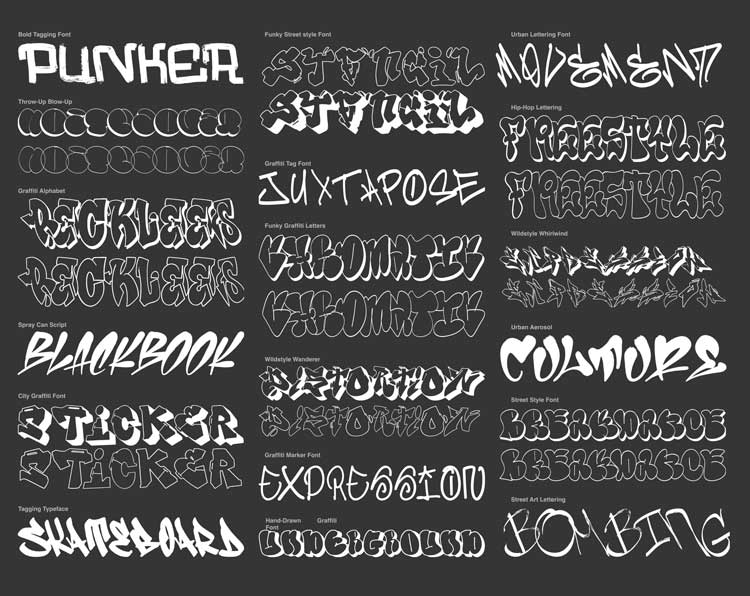 Bold Tagging Font
PUNKER
Throw-Up Blow-Up
Graffiti Alphabet
RECKLEES
RECKLEES
Spray Can Script
BLACKBOOK
City Graffiti Font
STiCKER
STiCKER
Tagging Typeface
SKATEBOARD
Funky Street style Font
STENCiL
STENCiL
Graffiti Tag Font
JUXTAPOSE
Funky Graffiti Letters
CHROMATIC
CHROMATIC
Wildstyle Wanderer
DISTORTION
DISTORTION
Graffiti Marker Font
EXPRESSION
Hand-Drawn Graffiti
Font
UNDERGROUND
Urban Lettering Font
MOVEMENT
Hip-Hop Lettering
FREESTYLE
FREESTYLE
Wildstyle Whirlwind
Urban Aerosol
CULTURE
Street Style Font
BREAKDANCE
BREAKDANCE
Street Art Lettering
BOMBING